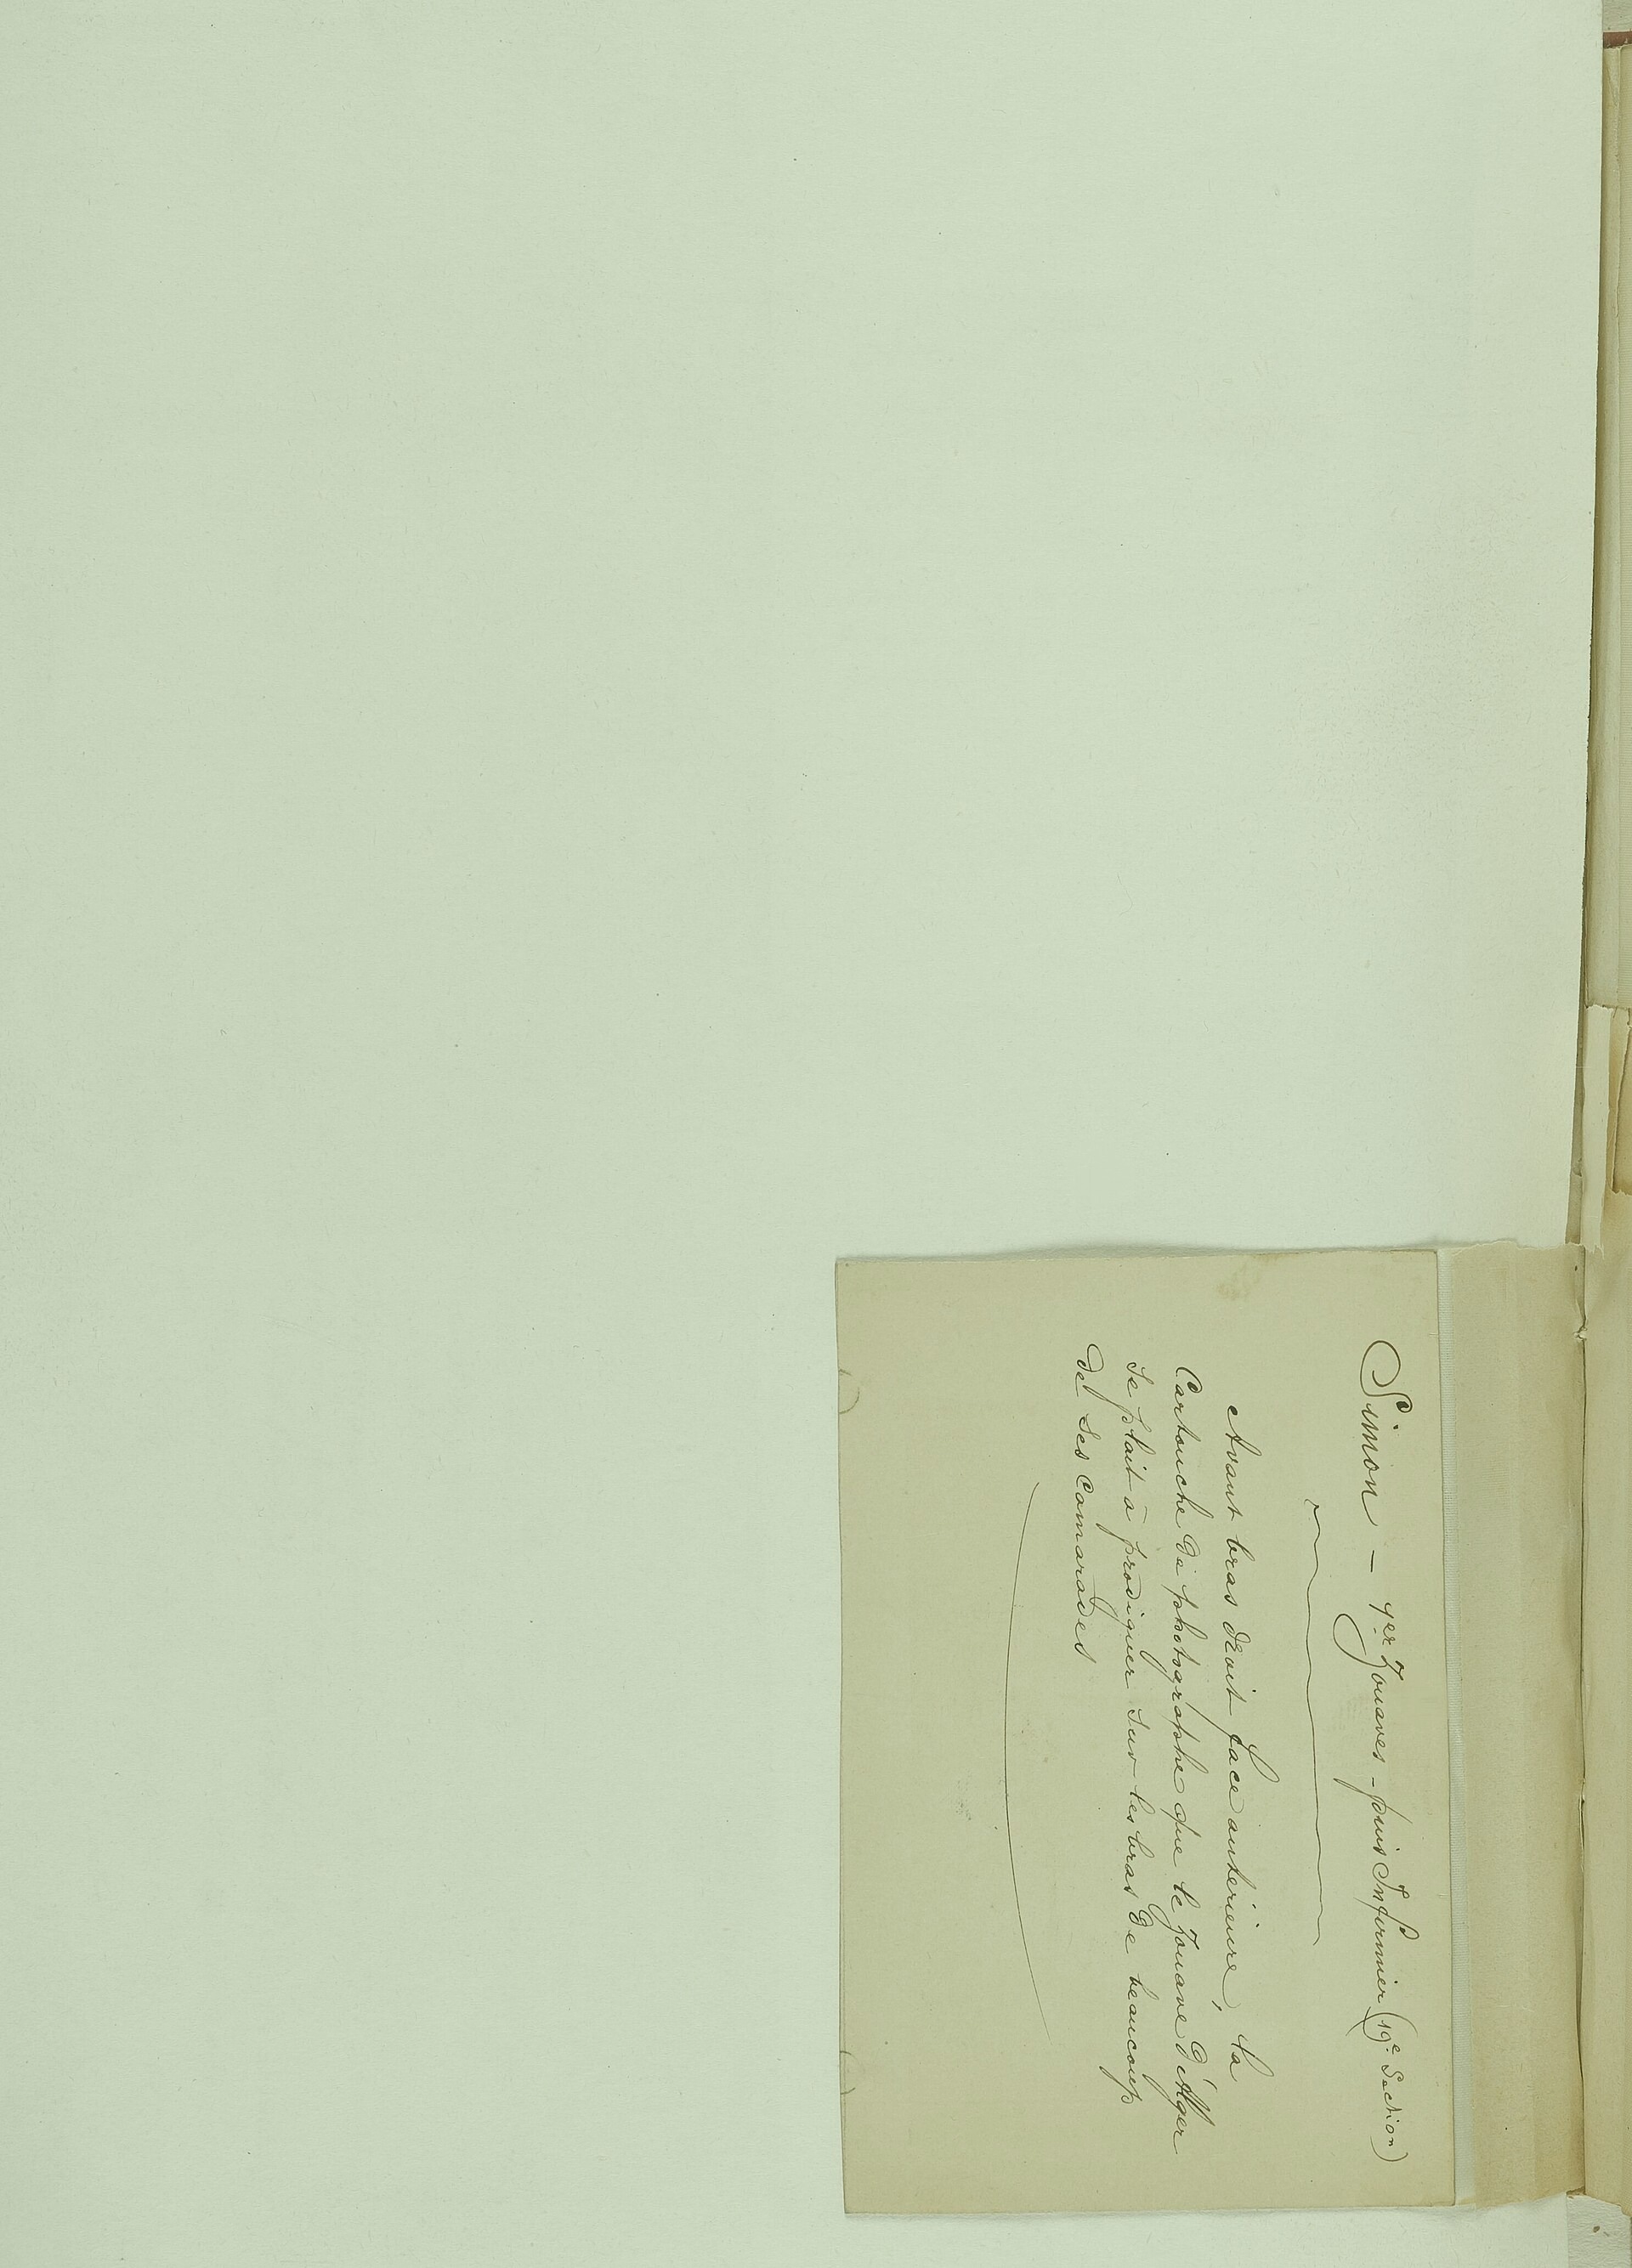 Simon — 1er Zouaves - puis Infirmier (19e Section)
Avant bras droit face antérieure, la
Cartouche de photographe que le Zouave d'Alger
se plait à prodiguer sur les bras de beaucoup
de ses camarades